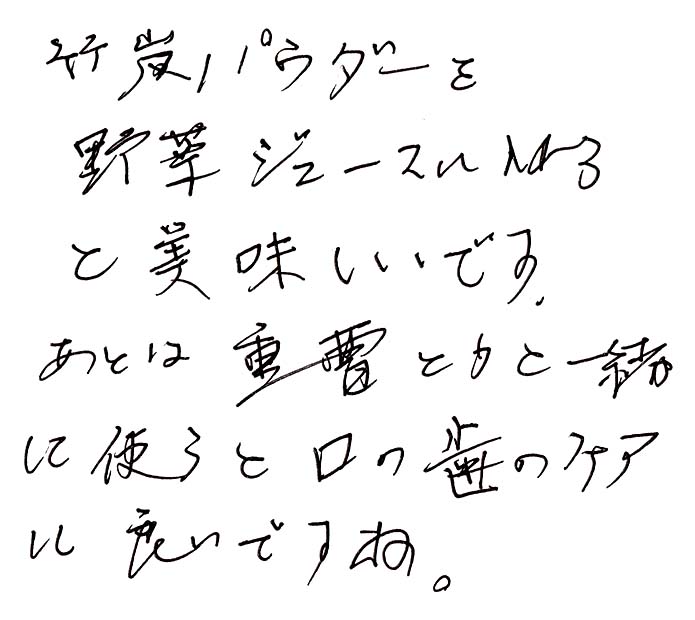 竹炭パウダーを
野菜ジュースに入れる
と美味しいです.
あとは重曹とかと一緒
に使うと口の歯のケア
に良いですね。